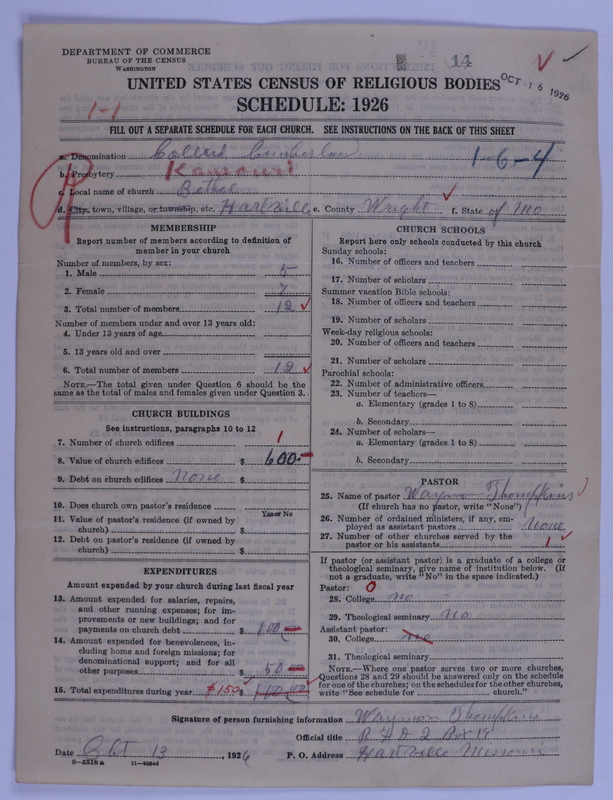 DEPARTMENT OF COMMERCE
BUREAU OF THE CENSUS
WASHINGTON
14
OCT 16 1926
UNITED STATES CENSUS OF RELIGIOUS BODIES
SCHEDULE: 1926
1-1
FILL OUT A SEPARATE SCHEDULE FOR EACH CHURCH. SEE INSTRUCTIONS ON THE BACK OF THIS SHEET
a. Denomination Collerd Cumberlan
1-6-4
b. Presbytery Kansouri
c. Local name of church Bethel
d. City, town, village, or township, etc. Hartville e. County Wright f. State of Mo
MEMBERSHIP
Report number of members according to definition of member in your church
Number of members, by sex:
1. Male 5
2. Female 7
3. Total number of members 12
Number of members under and over 13 years old:
4. Under 13 years of age
5. 13 years old and over
6. Total number of members 12
NOTE.—The total given under Question 6 should be the same as the total of males and females given under Question 3.
CHURCH BUILDINGS
See instructions, paragraphs 10 to 12
7. Number of church edifices 1
8. Value of church edifices $ 600
9. Debt on church edifices None $
10. Does church own pastor's residence
Yes or No
11. Value of pastor's residence (if owned by church) $
12. Debt on pastor's residence (if owned by church) $
EXPENDITURES
Amount expended by your church during last fiscal year
13. Amount expended for salaries, repairs, and other running expenses; for improvements or new building; and for payments on church debt $ 100
14. Amount expended for benevolences, including home and foreign missions; for denominational support; and for all other purposes $ 50
15. Total expenditures during year $150 $
CHURCH SCHOOLS
Report here only schools conducted by this church
Sunday schools:
16. Number of officers and teachers
17. Number of scholars
Summer vacation Bible schools:
18. Number of officers and teachers
19. Number of scholars
Week-day religious schools:
20. Number of officers and teachers
21. Number of scholars
Parochial schools:
22. Number of administrative officers
23. Number of teachers—
a. Elementary (grades 1 to 8)
b. Secondary
24. Number of scholars—
a. Elementary (grades 1 to 8)
b. Secondary
PASTOR
25. Name of pastor Waymon Thompkins
(If church has no pastor, write "None")
26. Number of ordained ministers, if any, employed as assistant pastors None
27. Number of other churches served by the pastor or his assistants 1
If pastor (or assistant pastor) is a graduate of a college or theological seminary, give name of institution below. (If not a graduate, write "No" in the space indicated.)
Pastor: 0
28. College no
29. Theological seminary no
Assistant pastor:
30. College no
31. Theological seminary
NOTE.—Where one pastor serves two or more churches, Questions 28 and 29 should be answered only on the schedule for one of the churches; on the schedules for the other churches, write "See schedule for church."
Signature of person furnishing information Waymon Thompkins
Official title R F D 2 Box 19
Date Oct 13, 1926 P. O. Address Hartville Missouri
8-551B a 11-9054d